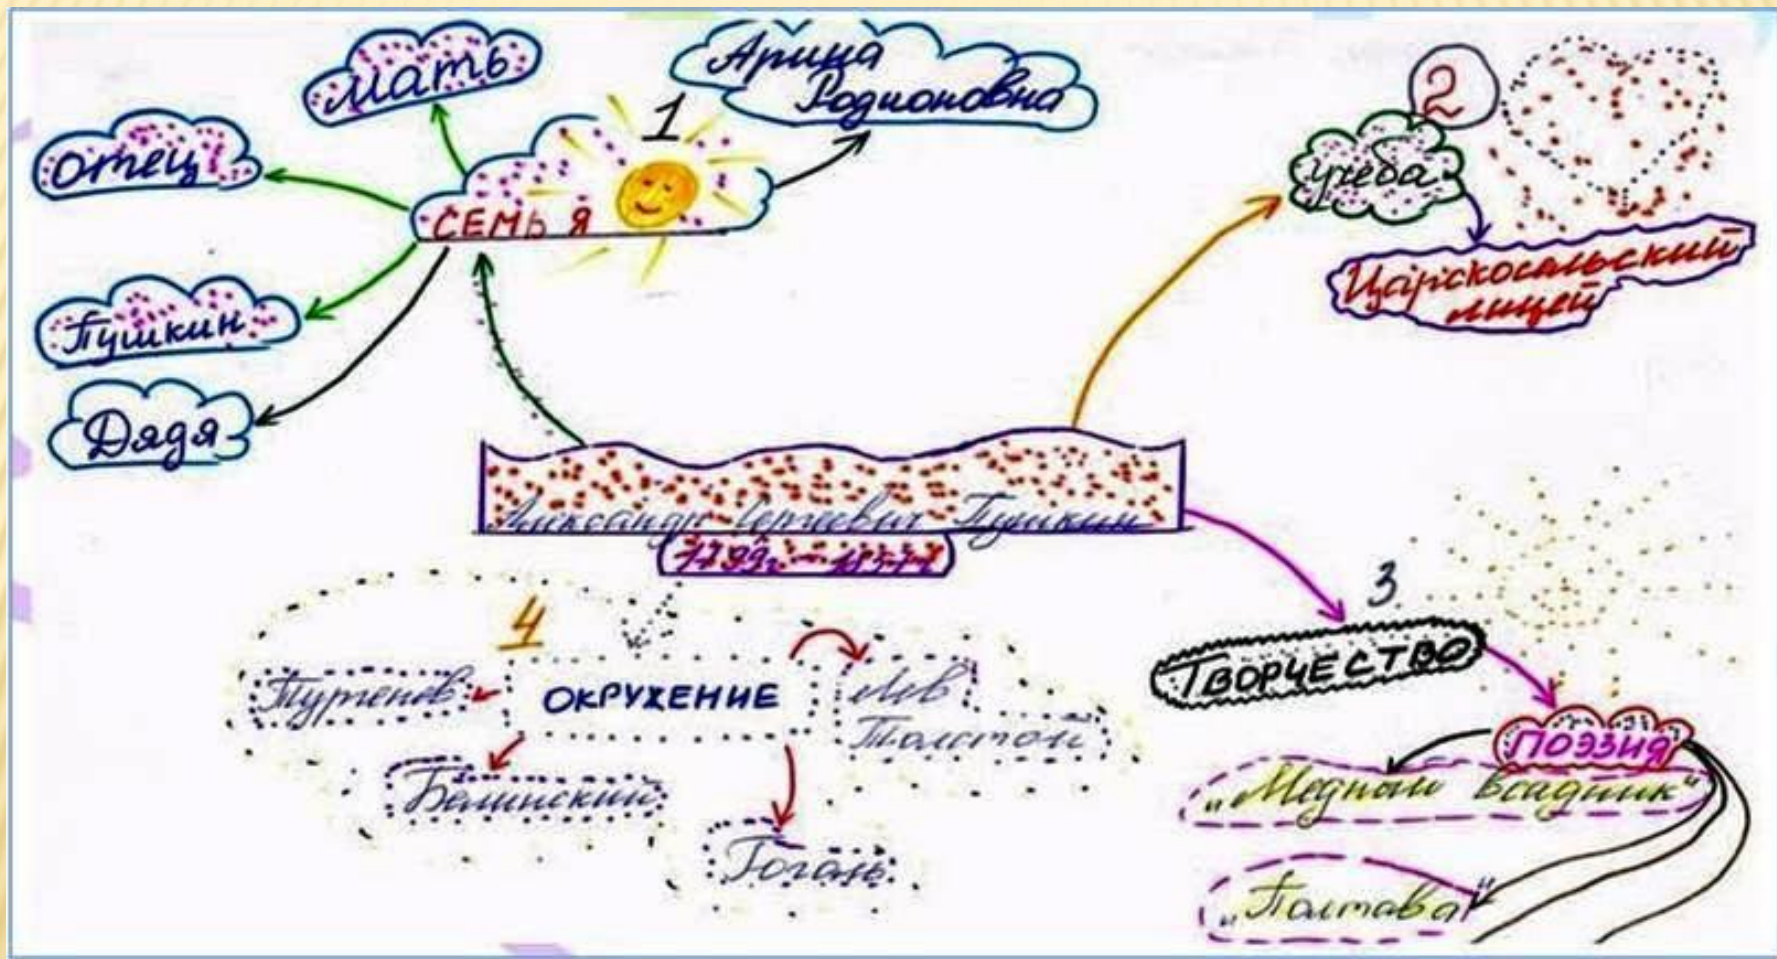 1
Мать
Арина
Родионовна
Отец
СЕМЬЯ
Пушкин
Дядя
2
Учёба
Царскосельский
лицей
Александр Сергеевич Пушкин
1799г – 1837г
3
ТВОРЧЕСТВО
ПОЭЗИЯ
„Медный всадник“
„Полтава“
4
ОКРУЖЕНИЕ
Тургенев
Лев
Толстой
Белинский
Гоголь